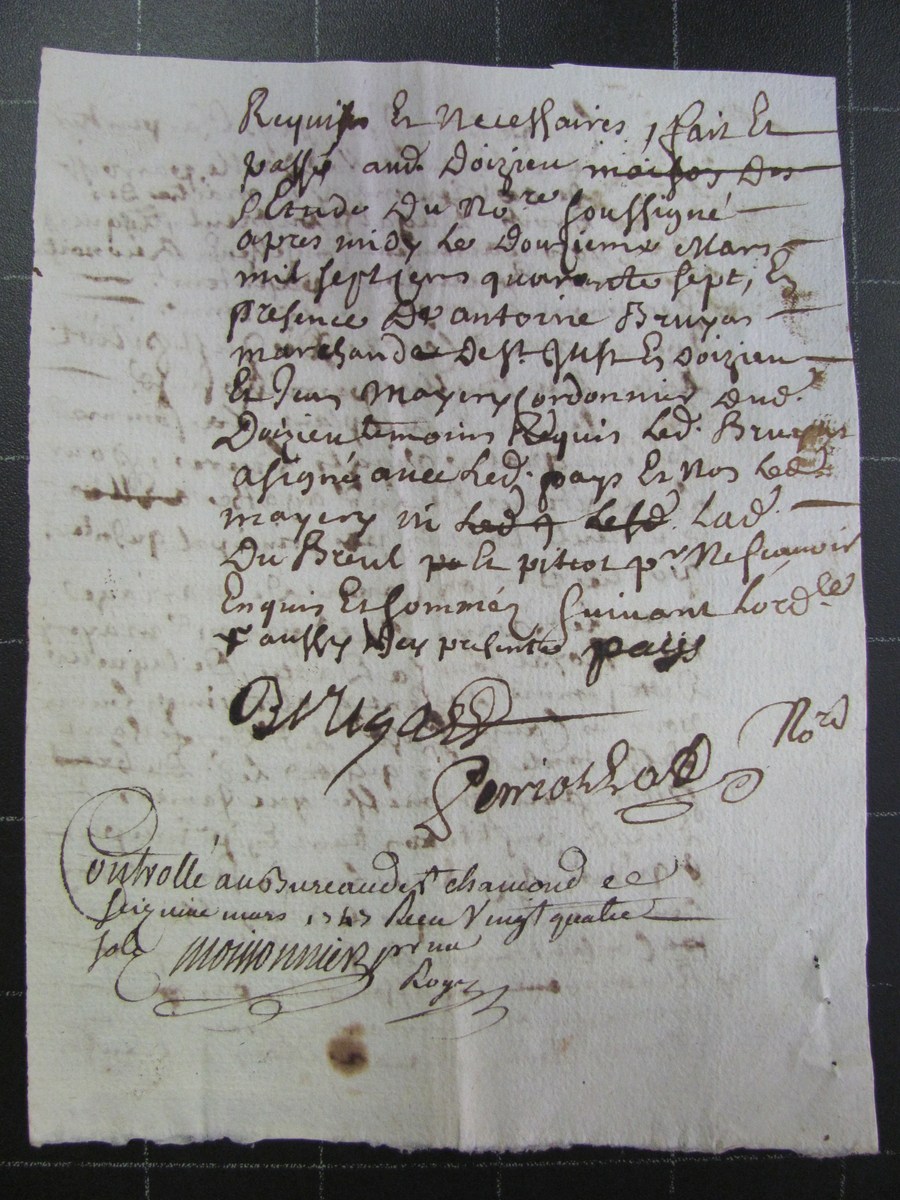 Requises Et Necessaires, fait Et
passé aud. Doizieu maison des
l'Etude du Nore soussigné
apres midy le Douzieme Mars
mil sept cens quarante sept, En
presence De antoine Bruyas
marchand de st. Just En doizieu
Et Jean Mayery Cordonnier dud.
Doizieu temoins Requis Led. Bruyas
a signé avec Led. pays Et Non Led.
mayery ni Lad.
Du Breul Et pitiot pr Ne scavoir
Enquis Et sommés suivant Lord.le
aussy presente pays
Bruyas
Nore
Controllé au Bureau de st chamond ce
seizieme mars 1747 Receu Vingt quatre
sols